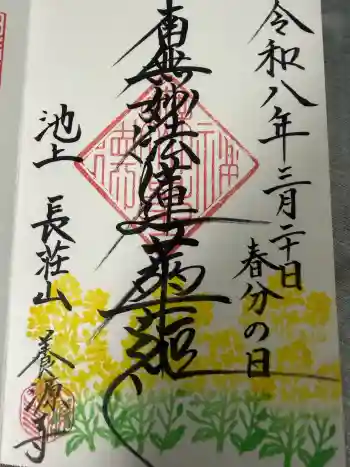 令和八年三月二十日
春分の日
南無妙法蓮華経
池上 長荘山 養源寺